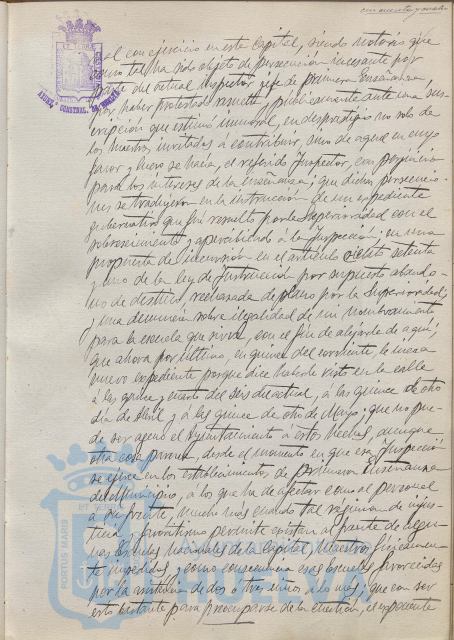 cincuenta y ocho
al con ejercicio en esta Capital, siendo notorio que
como tal ha sido objeto de persecución incesante por
parte del actual Inspector jefe de primera Enseñanza,
por haber protestado resuelta y públicamente ante una sus-
cripción que estimó inmoral, en desprestigio no solo de
los Maestros invitados a contribuir, sino de aquel en cuyo
favor y se hacía, el referido Inspector, con perjuicio
para los intereses de la Enseñanza; que dichas persecucio-
nes se tradujeron en la instrucción de un expediente
gubernativo que fué resuelto por la Superioridad con el
sobreseimiento y apercibiendo á la Inspección; en una
propuesta de incursión en el artículo ciento setenta
y uno de la ley de Instrucción por supuesto abando-
no de destino, rechazada de plano por la Superioridad;
y una denuncia sobre ilegalidad de mi nombramiento
para la escuela que sirve, con el fin de alejarle de aquí;
que ahora por último, en quince del corriente, le incoa
nuevo expediente porque dice haberle visto en la calle
á las quince y cuarto del seis del actual, á las quince de otro
día de Abril y á las quince de otro de Mayo; que no pue-
de ser ageno el Ayuntamiento á estos hechos, aunque
otra cosa parezca, desde el momento en que esa Inspección
se ejerce en los establecimientos de primera Enseñanza
del Municipio, á los que ha de afectar como al personal
á su frente, mucho más cuando tal régimen de injus-
ticia y favoritismo permite existan al frente de algu-
nas Escuelas Nacionales de la Capital, Maestros
impedidos, y como consecuencia esas escuelas favorecidas
por la asistencia de dos ó tres niños á lo más; que con ser
esto bastante para preocuparse de la cuestión, el expediente
PORTUS MARIS
HUELVA